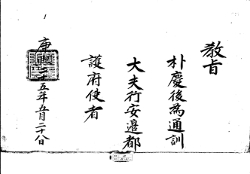 敎旨
朴慶後為通訓
大夫行安邊都
護府使者
康 二十五年五月二十八日